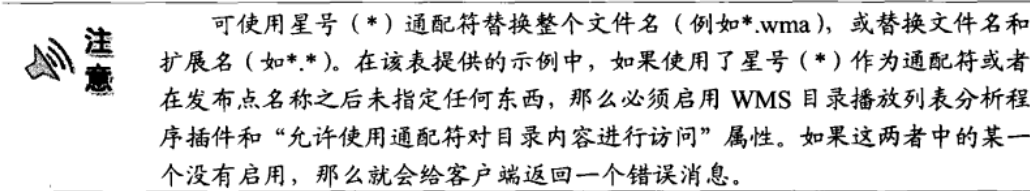 注意
可使用星号（*）通配符替换整个文件名（例如*.wma），或替换文件名和
扩展名（如*.*）。在该表提供的示例中，如果使用了星号（*）作为通配符或者
在发布点名称之后未指定任何东西，那么必须启用 WMS 目录播放列表分析程
序插件和“允许使用通配符对目录内容进行访问”属性。如果这两者中的某一
个没有启用，那么就会给客户端返回一个错误消息。